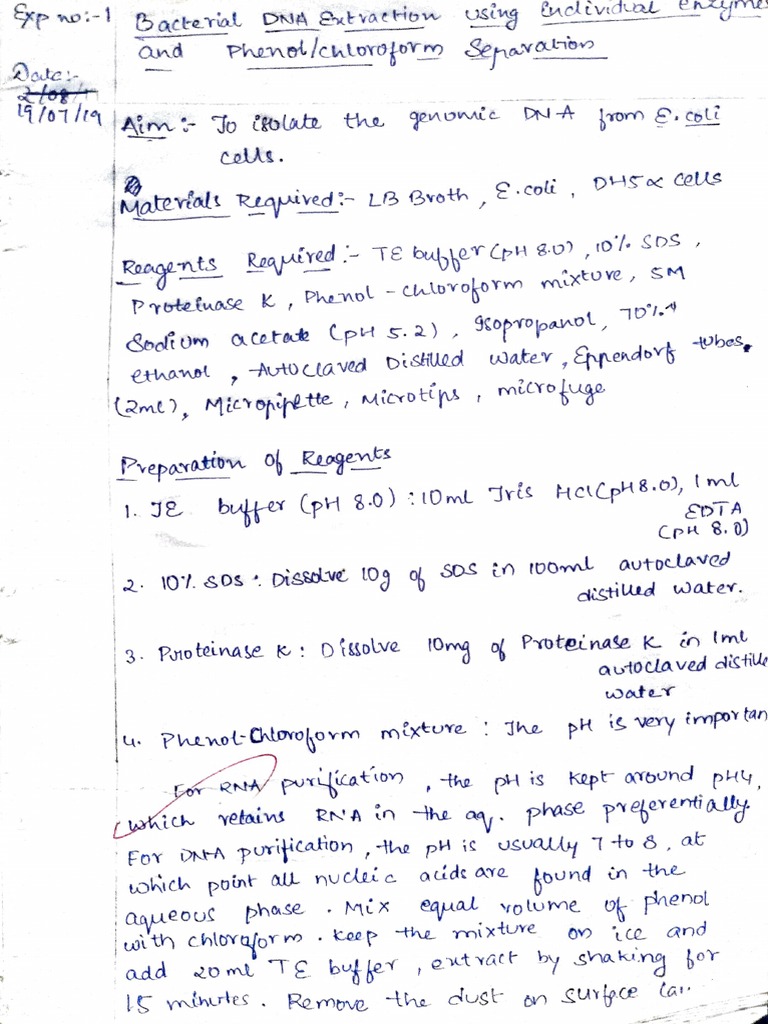 Exp no:-1 Bacterial DNA Extraction using Individual Enzymes
and Phenol/chloroform Separation
Date:-
2/08/
19/07/19
Aim:- To isolate the genomic DNA from E.coli
cells.
Materials Required:- LB Broth, E.coli, DH5α cells
Reagents Required:- TE buffer (pH 8.0), 10% SDS,
Proteinase K, Phenol-chloroform mixture, 5M
Sodium acetate (pH 5.2), Isopropanol, 70%
ethanol, Autoclaved Distilled water, Eppendorf tubes
(2ml), Micropipette, Microtips, microfuge
Preparation of Reagents
1. TE buffer (pH 8.0) : 10ml Tris HCl (pH 8.0), 1ml
EDTA
(pH 8.0)
2. 10% SDS : Dissolve 10g of SDS in 100ml autoclaved
distilled water.
3. Proteinase K : Dissolve 10mg of Proteinase K in 1ml
autoclaved distille
water
4. Phenol-Chloroform mixture : The pH is very importan
For RNA purification, the pH is kept around pH4,
which retains RNA in the aq. phase preferentially.
For DNA purification, the pH is usually 7 to 8, at
which point all nucleic acids are found in the
aqueous phase. Mix equal volume of phenol
with chloroform. Keep the mixture on ice and
add 20ml TE buffer, extract by shaking for
15 minutes. Remove the dust on surface